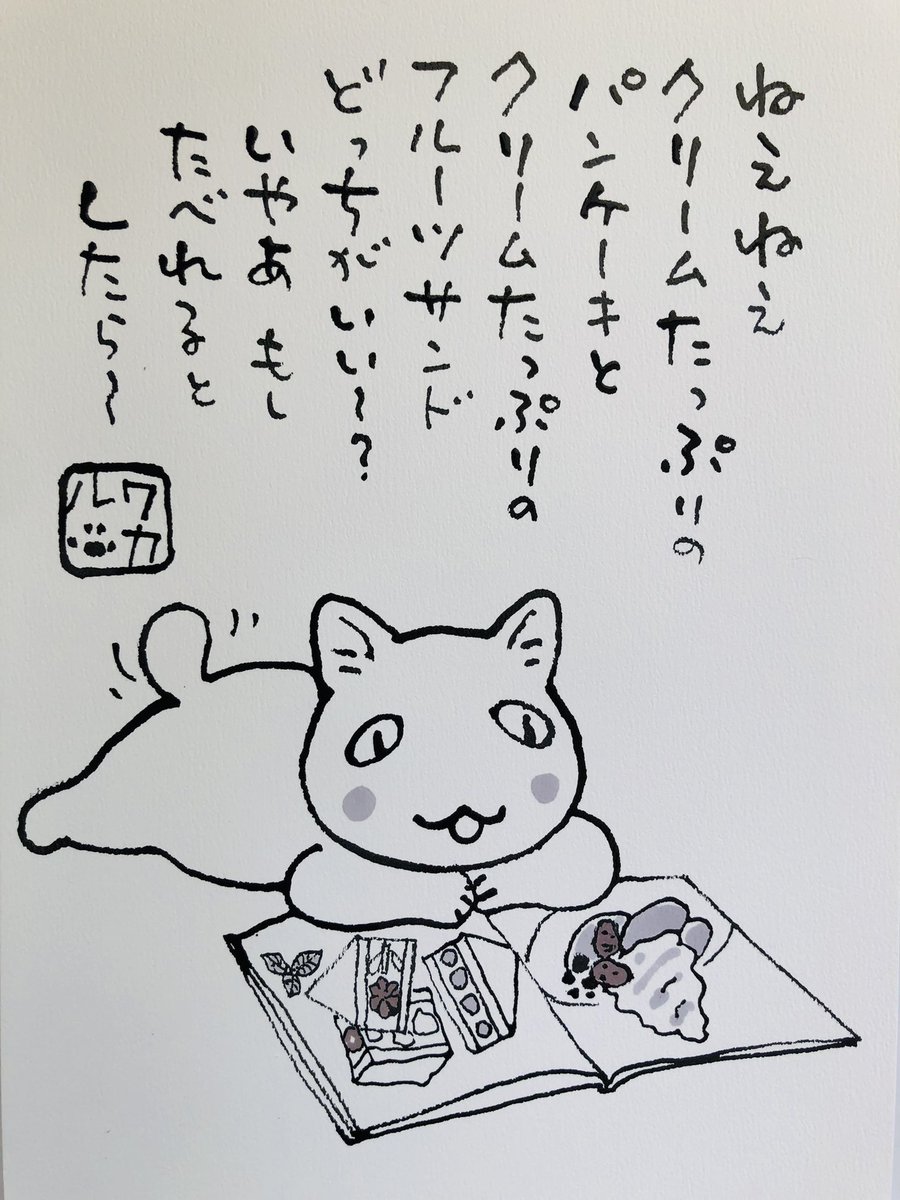 ねえねえ
クリームたっぷりの
パンケーキと
クリームたっぷりの
フルーツサンド
どっちがいい〜?
いやあ もし
たべれると
したら〜
ワカ
ル